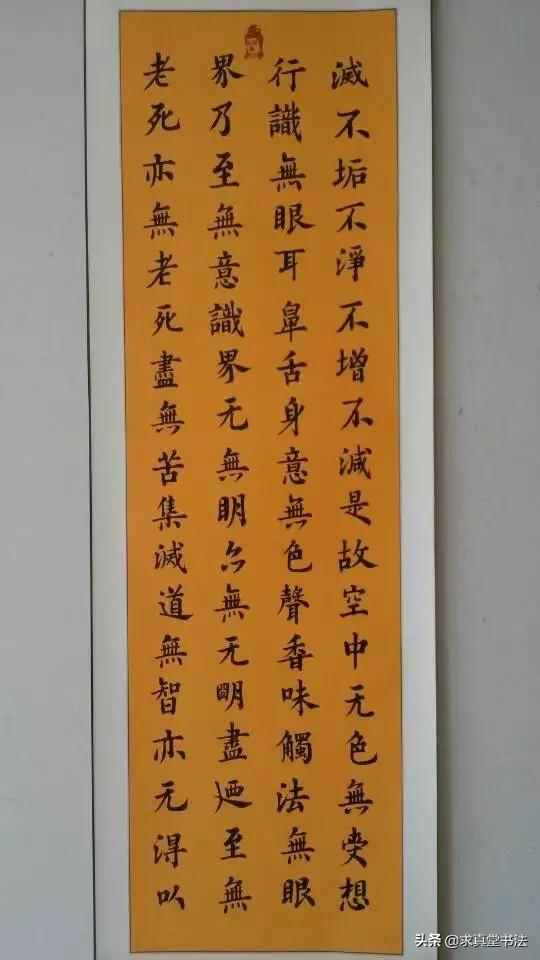 滅不垢不淨不增不減是故空中无色無受想
行識無眼耳鼻舌身意無色聲香味觸法無眼
界乃至無意識界无無明亦無无明盡迺至無
老死亦無老死盡無苦集滅道無智亦无得以
头条 @求真堂书法